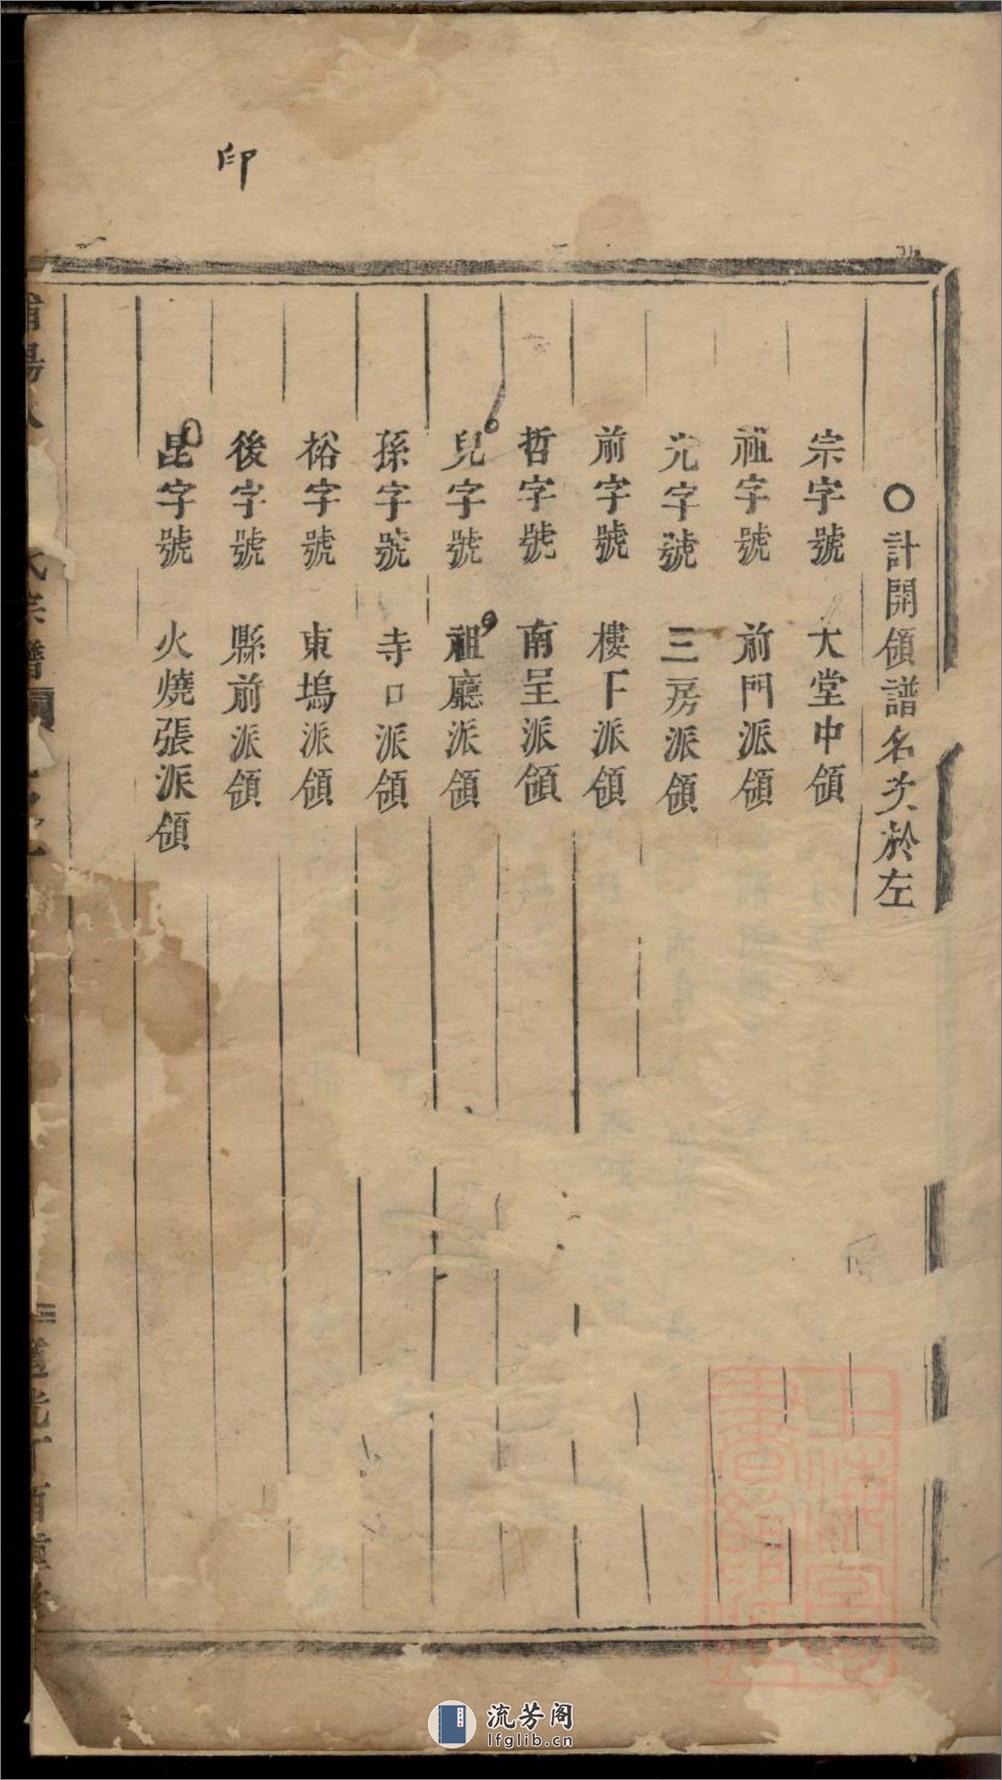 印
○計開領譜名次於左
宗字號 大堂中領
祖字號 前門派領
光字號 三房派領
前字號 樓下派領
哲字號 南呈派領
兒字號 祖廳派領
孫字號 寺口派領
裕字號 東塢派領
後字號 縣前派領
昆字號 火燒張派領
氏宗譜
道光丁酉重
上海圖書館藏
流芳阁
lfglib.cn